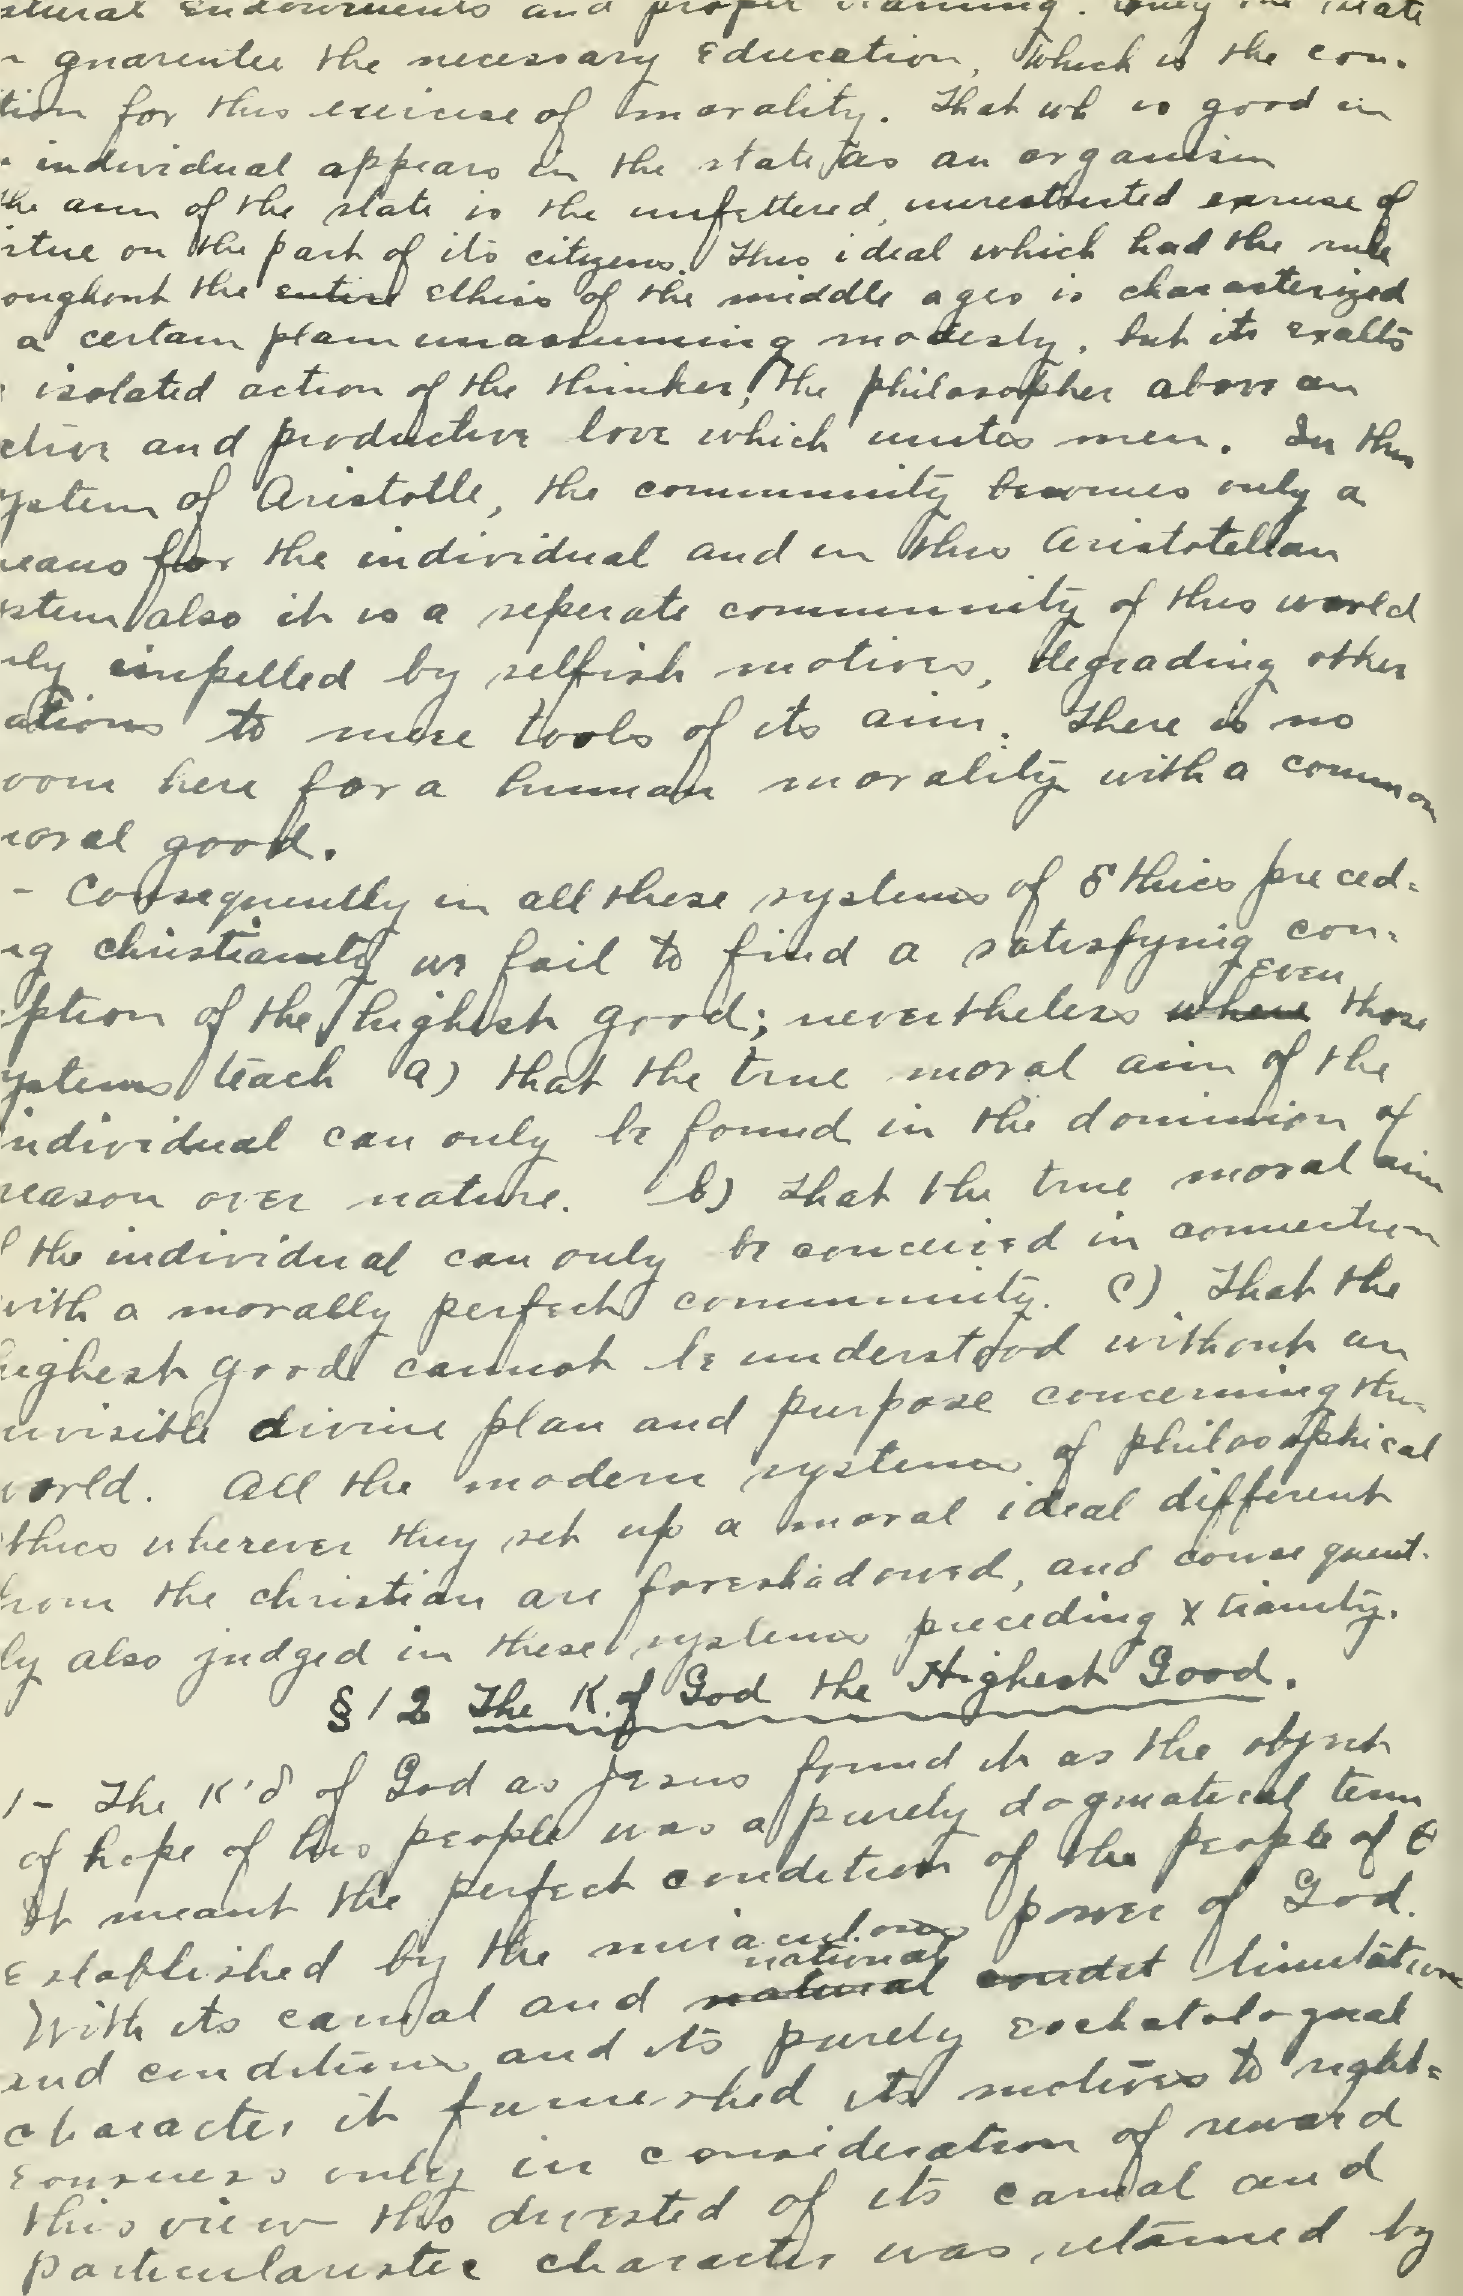 atural endowments and proper training. Only the state
guarentee the necessary Education, which is the con-
tion for this exercise of morality. That wh is good in
individual appears in the state, as an organism
the aim of the state is the unfettered, unrestricted exercise of
rtue on the part of its citizens. This ideal which had the rule
oughout the entire ethics of the middle ages is characterized
a certain plain unassuming modesty, but its exalts
isolated action of the thinker, the philosopher above an
ctive and productive love which unites men. In this
ystem of Aristotle, the community becomes only a
eans for the individual and in this Aristotelian
stem also it is a seperate community of this world
ly impelled by selfish motives, degrading other
ations to mere tools of its aim. There is no
oom here for a human morality with a common
oral good.
- Consequently in all these systems of Ethics preced-
ng christianity we fail to find a satisfying con-
ption of the highest good; nevertheless where even those
ystems teach a) that the true moral aim of the
individual can only be found in the dominion of
reason over nature. b) that the true moral aim
f the individual can only be conceived in connection
with a morally perfect community. c) That the
highest good cannot be understood without an
nvisible divine plan and purpose concerning the
world. All the modern systems of philosophical
thics wherever they set up a moral ideal different
from the christian are foreshadowed, and consequent-
ly also judged in these systems preceding Xtianity.
§12 The K. of God the Highest Good.
1- The K'd of God as Jesus found it as the object
of hope of his people was a purely dogmatical term
It meant the perfect condition of the people of
Established by the miraculous power of God.
With its carnal and natural national condit limitations
and conditions and its purely eschatological
character it furnished its motives to right-
eousness only in consideration of reward
this view tho divested of its carnal and
particularistic character was retained by